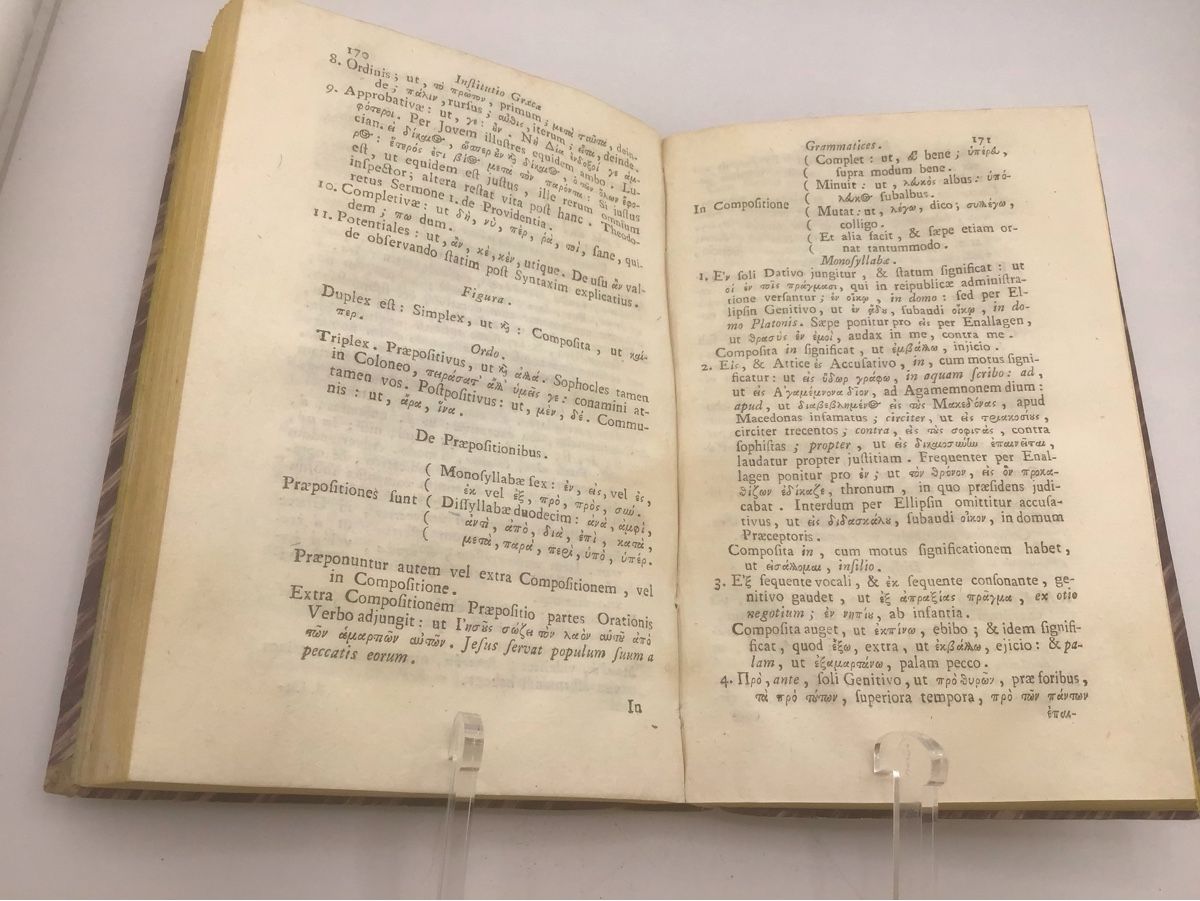 170
Institutio Græcæ
8. Ordinis; ut, τὸ πρῶτον, primum; μετὰ ταῦτα, dein-
de; πάλιν, rursus; αὖθις, iterum; εἶτα, deinde.
9. Approbativæ: ut, γε: ἂν. Νὴ Δία ἐνδοξοί γε ἀμ-
φότεροι. Per Jovem illustres equidem ambo. Lu-
cian. εἰ δίκαιος, ὥσπερ ἂν καὶ δίκαιος, ὁ τῶν ὅλων ἔφο-
ρος: ἕτερός ἐστι βίος μετὰ τὸν παρόντα: Si justus
est, ut equidem est justus, ille rerum omnium
inspector; altera restat vita post hanc. Theodo-
retus Sermone 1. de Providentia.
10. Completivæ: ut δὴ, νὺ, πὲρ, ῥὰ, τοὶ, sane, qui-
dem; πω dum.
11. Potentiales: ut, ἂν, κὲ, κὲν, utique. De usu ἂν val-
de observando statim post Syntaxim explicatius.
Figura.
Duplex est: Simplex, ut καὶ: Composita, ut καί-
περ.
Ordo.
Triplex. Præpositivus, ut καὶ ἀλλά. Sophocles tamen
in Coloneo, πειράσατ' ἀλλ' ὑμεῖς γε: conamini at-
tamen vos. Postpositivus: ut, μὲν, δέ. Commu-
nis: ut, ἄρα, ἵνα.
De Præpositionibus.
( Monosyllabæ sex: ἐν, εἰς, vel ἐς,
( ἐκ vel ἐξ, πρὸ, πρὸς, σύν.
Præpositiones sunt ( Dissyllabæ duodecim: ἀνὰ, ἀμφὶ,
( ἀντὶ, ἀπὸ, διὰ, ἐπὶ, κατὰ,
( μετὰ, παρὰ, περὶ, ὑπὸ, ὑπέρ.
Præponuntur autem vel extra Compositionem, vel
in Compositione.
Extra Compositionem Præpositio partes Orationis
Verbo adjungit: ut Ἰησοῦς σώζει τὸν λαὸν αὐτοῦ ἀπὸ
τῶν ἁμαρτιῶν αὐτῶν. Jesus servat populum suum a
peccatis eorum.
In
171
Grammatices.
( Complet: ut, εὖ bene; ὑπέρευ,
( supra modum bene.
( Minuit: ut, λευκὸς albus: ὑπό-
In Compositione ( λευκος subalbus.
( Mutat: ut, λέγω, dico; συλλέγω,
( colligo.
( Et alia facit, & sæpe etiam or-
( nat tantummodo.
Monosyllabæ.
1. Ἐν soli Dativo jungitur, & statum significat: ut
οἱ ἐν τοῖς πράγμασι, qui in reipublicæ administra-
tione versantur; ἐν οἴκῳ, in domo: sed per El-
lipsin Genitivo, ut ἐν ᾅδου, subaudi οἴκῳ, in do-
mo Platonis. Sæpe ponitur pro εἰς per Enallagen,
ut θρασὺς ἐν ἐμοὶ, audax in me, contra me.
Composita in significat, ut ἐμβάλλω, injicio.
2. Εἰς, & Attice ἐς Accusativo, in, cum motus signi-
ficatur: ut εἰς ὕδωρ γράφω, in aquam scribo: ad,
ut εἰς Ἀγαμέμνονα δῖον, ad Agamemnonem dium:
apud, ut διαβεβλημένος εἰς τοὺς Μακεδόνας, apud
Macedonas infamatus; circiter, ut εἰς τριακοσίους,
circiter trecentos; contra, εἰς τοὺς σοφιστὰς, contra
sophistas; propter, ut εἰς δικαιοσύνην ἐπαινεῖται,
laudatur propter justitiam. Frequenter per Enal-
lagen ponitur pro ἐν; ut τὸν θρόνον, εἰς ὃν προκα-
θίζων ἐδίκαζε, thronum, in quo præsidens judi-
cabat. Interdum per Ellipsin omittitur accusa-
tivus, ut εἰς διδασκάλου, subaudi οἶκον, in domum
Præceptoris.
Composita in, cum motus significationem habet,
ut εἰσάλλομαι, insilio.
3. Ἐξ sequente vocali, & ἐκ sequente consonante, ge-
nitivo gaudet, ut ἐξ ἀπραξίας πρᾶγμα, ex otio
negotium; ἐν νηπίου, ab infantia.
Composita auget, ut ἐκπίνω, ebibo; & idem signifi-
ficat, quod ἔξω, extra, ut ἐκβάλλω, ejicio: & pa-
lam, ut ἐξαμαρτάνω, palam pecco.
4. Πρὸ, ante, soli Genitivo, ut πρὸ θυρῶν, præ foribus,
τὰ πρὸ τούτων, superiora tempora, πρὸ τῶν πάντων